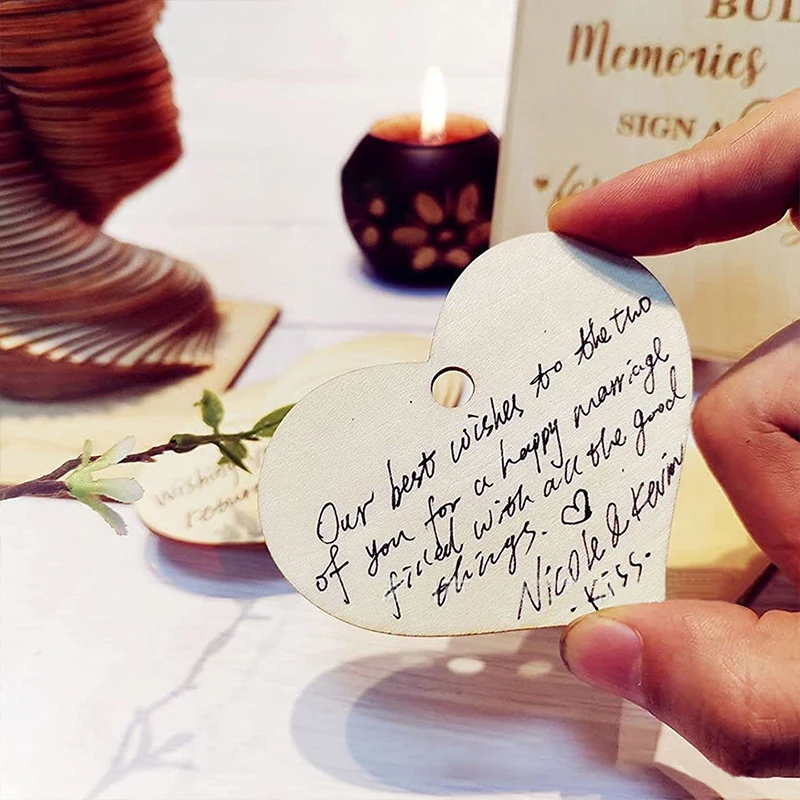 BUI
Memories
SIGN A
Our best wishes to the two
of you for a happy marriage
filled with all the good
things. ♡
Nicole & Kevin
. Kiss.
Wishing